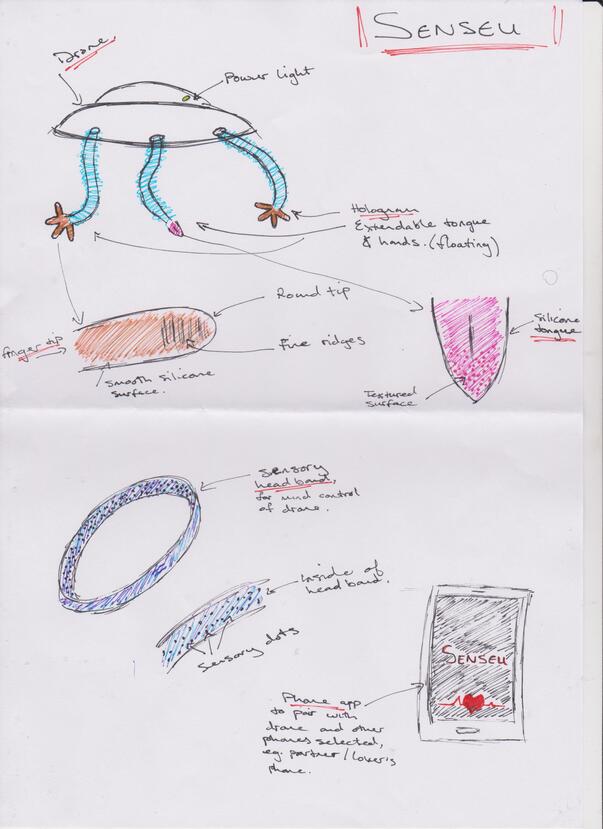 SENSEU
Drone
Power light
Hologram
Extendable tongue
& hands. (floating)
Round tip
Silicone
tongue
finger tip
Fine ridges
Smooth silicone
surface.
Textured
surface
Sensory
headband,
for mind control
of drone.
Inside of
headband.
Sensory dots
SENSEU
Phone app
to pair with
drone and other
phones selected,
eg. partner/lover's
phone.